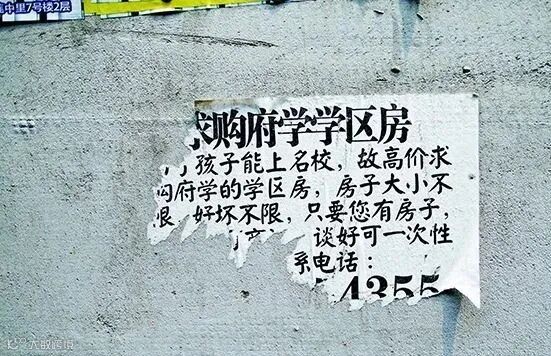 中里7号楼2层
求购府学学区房
孩子能上名校，故高价求
购府学的学区房，房子大小不
限 好坏不限，只要您有房子，
谈好可一次性
系电话：
4355
大敢跨境